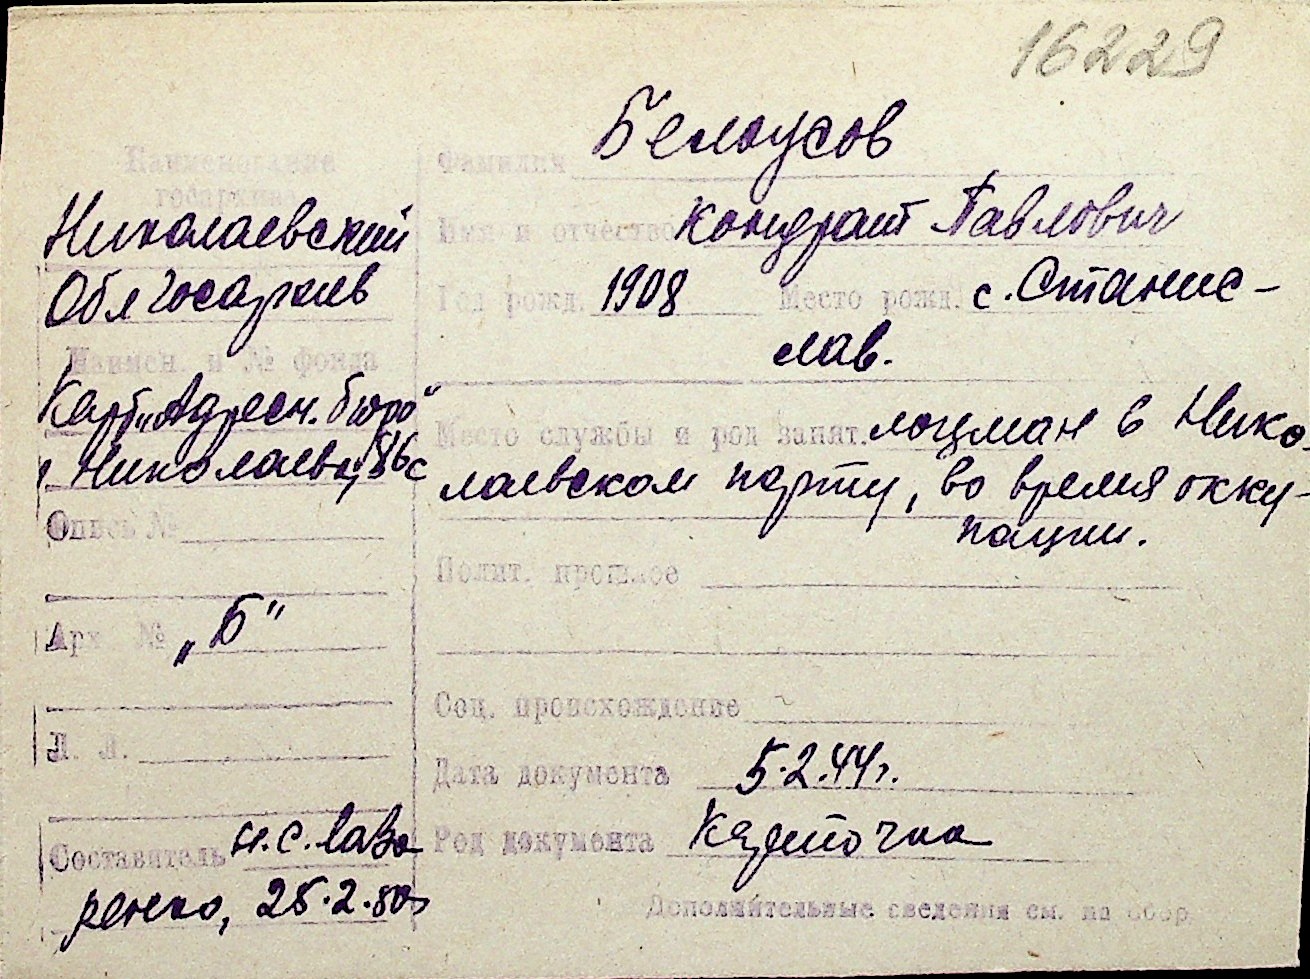 16229
Наименование
госархива
Николаевский
Облгосархив
Наимен. и № фонда
Карт. „Адресн. бюро"
г. Николаева,
Опись №
Арх. № „Б"
Л. Л.
Составитель Н.С. Лаза
ренко, 25.2.50г
Фамилия Белоусов
Имя и отчество Кондрат Павлович
Год рожд. 1908 Место рожд. с. Станис-
лав.
Место службы и род занят. лоцман в Нико-
лаевском порту, во время окку-
пации.
Полит. прошлое
Соц. происхождение
Дата документа 5.2.44г.
Род документа Карточка
Дополнительные сведения см. на обор.